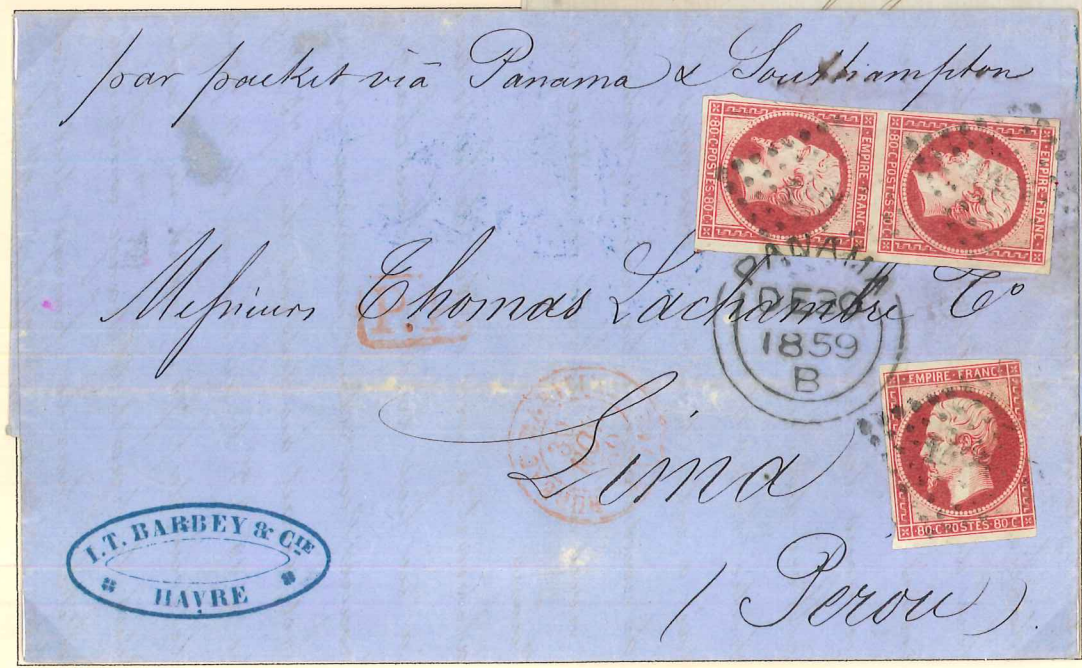 par packet viā Panama & Southampton
EMPIRE FRANC
80 C POSTES 80 C
EMPIRE FRANC
80 C POSTES 80 C
PANAMA
DE
1859
B
Messieurs Thomas Lachambre Cº
P.
Lima
EMPIRE FRANC
80 C POSTES 80 C
I.T. BARBEY & CIE
HAVRE
(Perou)